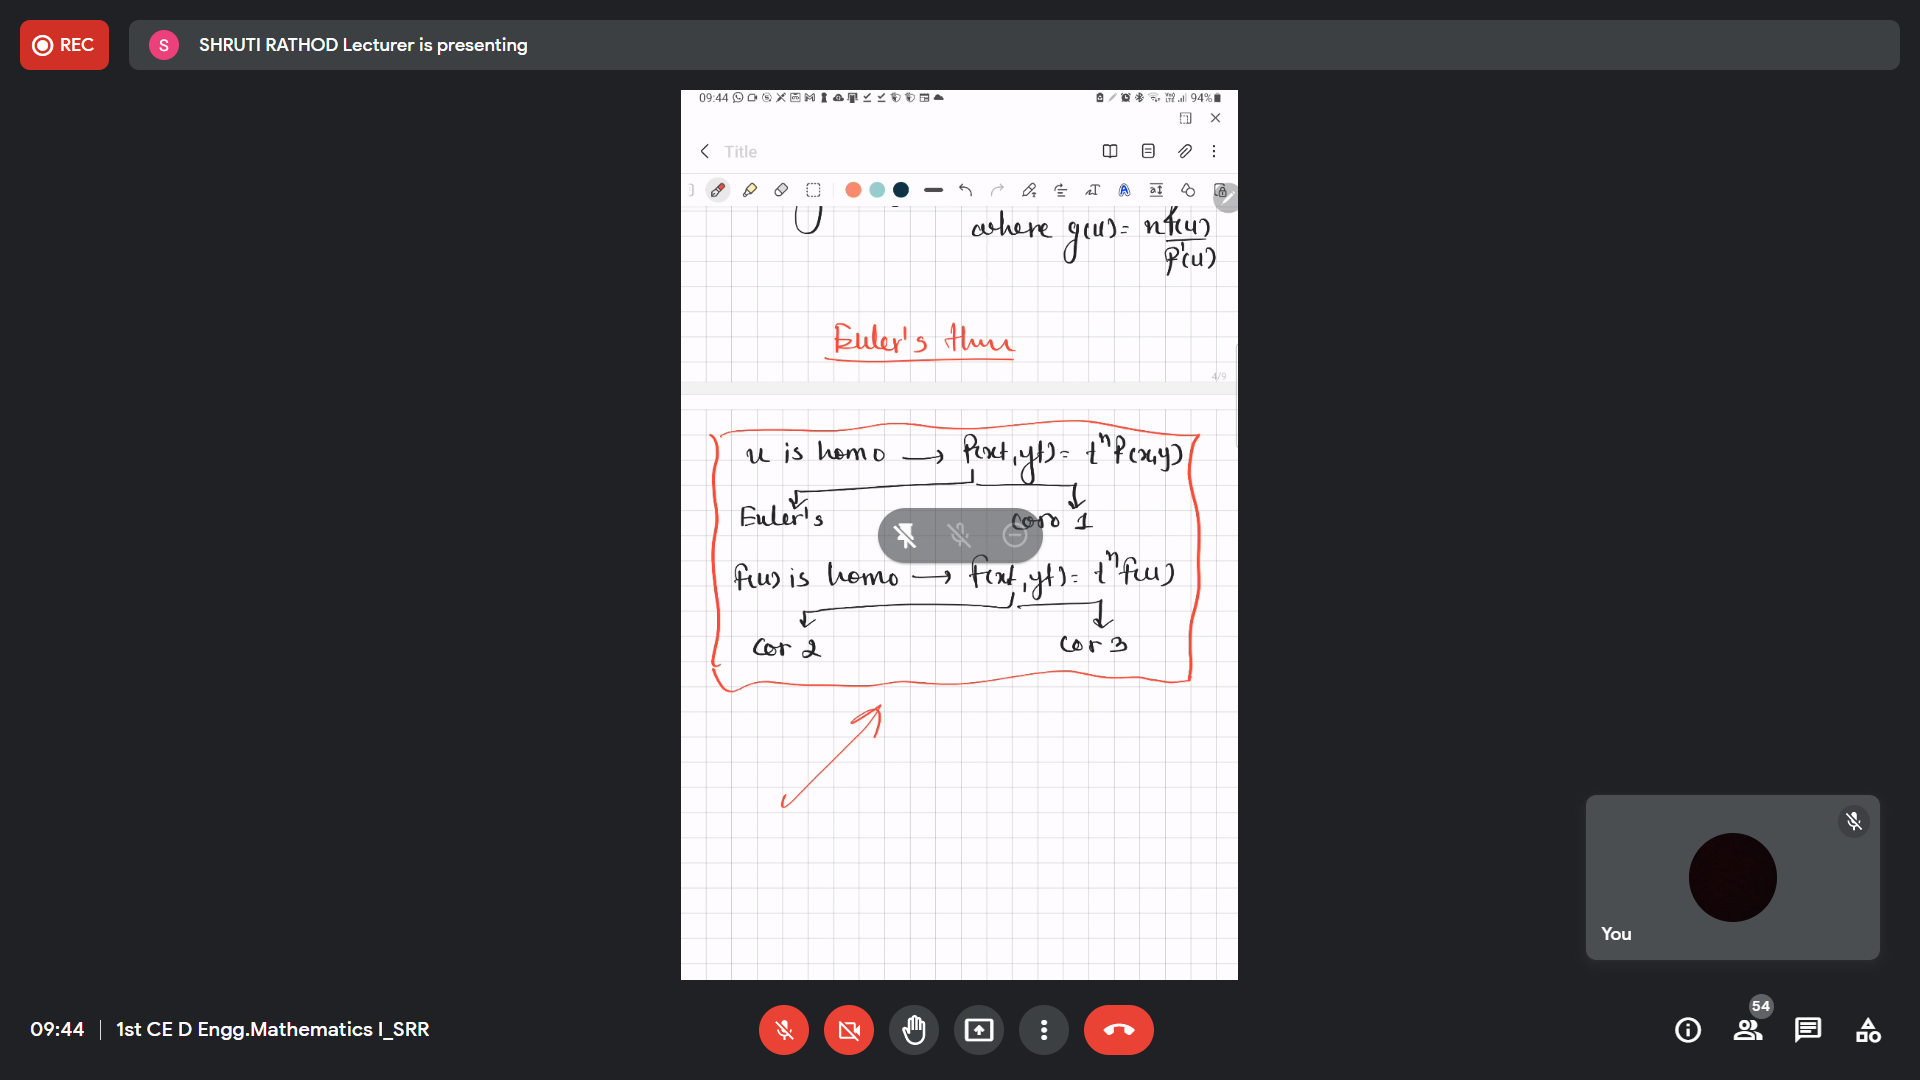 REC
S SHRUTI RATHOD Lecturer is presenting
09:44
94%
Title
where g(u) = n f(u)
f'(u)
Euler's thm
4/9
u is homo → f(xt, yt) = tⁿ f(x,y)
Euler's
coro 1
f(u) is homo → f(xt, yt) = tⁿ f(u)
Cor 2
Cor 3
You
09:44 | 1st CE D Engg.Mathematics I_SRR
54